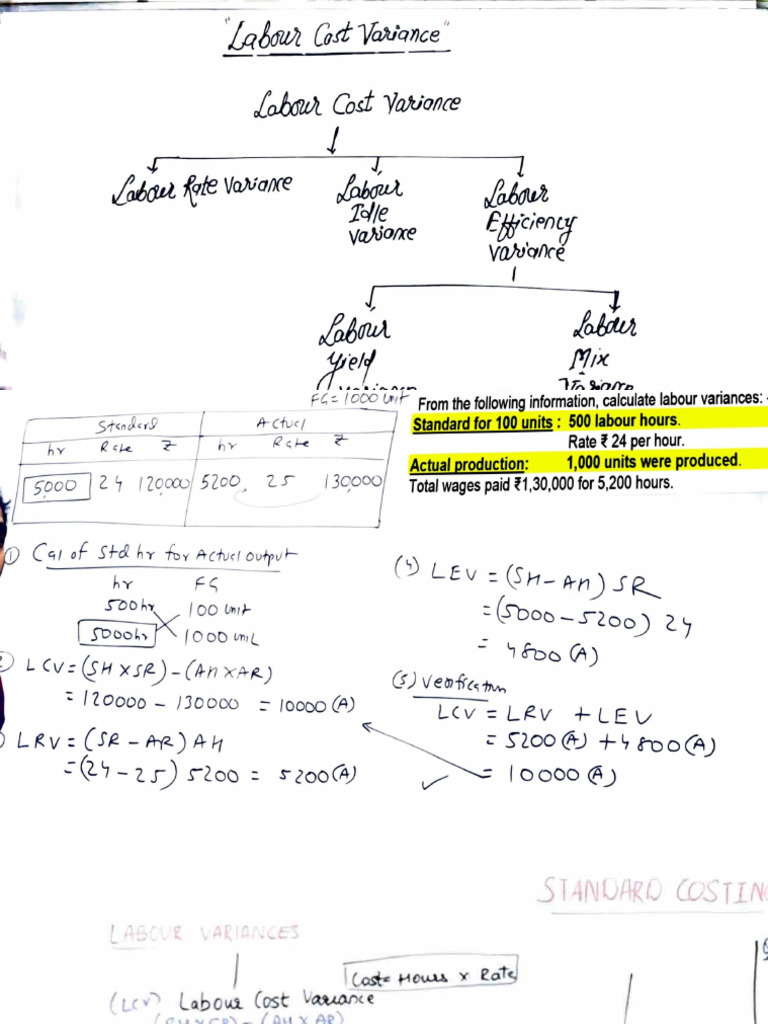 "Labour Cost Variance"
Labour Cost Variance
Labour Rate Variance
Labour
Idle
Variance
Labour
Efficiency
Variance
Labour
Yield
Labour
Mix
Variance
FG = 1000 Unit
Standard Actual
hr Rate ₹ hr Rate ₹
5000 24 120,000 5200 25 130,000
From the following information, calculate labour variances:
Standard for 100 units : 500 labour hours.
Rate ₹ 24 per hour.
Actual production: 1,000 units were produced.
Total wages paid ₹1,30,000 for 5,200 hours.
① Cal of Std hr for Actual output
hr FG
500hr 100 Unit
5000hr 1000 Unit
LCV = (SH X SR) - (AH X AR)
= 120000 - 130000 = 10000 (A)
LRV = (SR - AR) AH
= (24 - 25) 5200 = 5200 (A)
(4) LEV = (SH - AH) SR
= (5000 - 5200) 24
= 4800 (A)
(5) Verification
LCV = LRV + LEV
= 5200 (A) + 4800 (A)
= 10000 (A)
STANDARD COSTING
LABOUR VARIANCES
Cost = Hours x Rate
(LCV) Labour Cost Variance
(SH X SR) - (AH X AR)